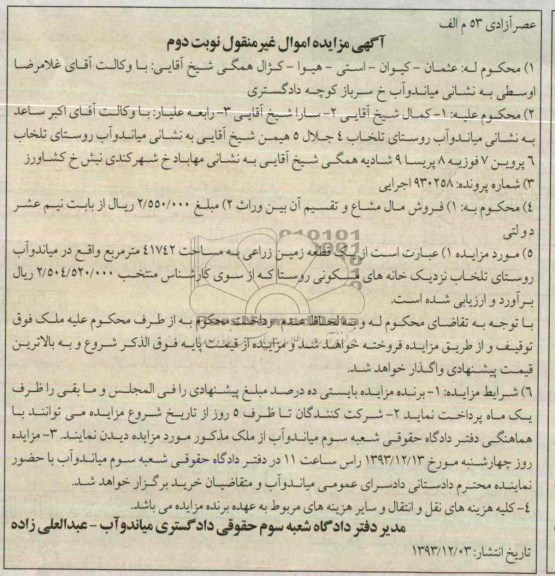 عصرآزادی ۵۳ م الف
آگهی مزایده اموال غیرمنقول نوبت دوم
۱) محکوم له: عثمان – کیوان – استی – هیوا – کژال همگی شیخ آقایی: با وکالت آقای غلامرضا
اوسطی به نشانی میاندوآب خ سرباز کوچه دادگستری
۲) محکوم علیه: ۱- کمال شیخ آقایی ۲- سارا شیخ آقایی ۳- رابعه علیار: با وکالت آقای اکبر ساعد
به نشانی میاندوآب روستای تلخاب ۴ جلال ۵ هیمن شیخ آقایی به نشانی میاندوآب روستای تلخاب
۶ پروین ۷ فوزیه ۸ پریسا ۹ شادیه همگی شیخ آقایی به نشانی مهاباد خ شهرکندی نبش خ کشاورز
۳) شماره پرونده: ۹۳۰۲۵۸ اجرایی
۴) محکوم به: ۱) فروش مال مشاع و تقسیم آن بین وراث ۲) مبلغ ۲/۵۵۰/۰۰۰ ریال از بابت نیم عشر
دولتی
۵) مورد مزایده ۱) عبارت است از یک قطعه زمین زراعی به مساحت ۴۱۷۴۲ مترمربع واقع در میاندوآب
روستای تلخاب نزدیک خانه های مسکونی روستا که از سوی کارشناس منتخب ۲/۵۰۴/۵۲۰/۰۰۰ ریال
برآورد و ارزیابی شده است.
با توجه به تقاضای محکوم له و به لحاظ عدم پرداخت محکوم به از طرف محکوم علیه ملک فوق
توقیف و از طریق مزایده فروخته خواهد شد و مزایده از قیمت پایه فوق الذکر شروع و به بالاترین
قیمت پیشنهادی واگذار خواهد شد.
۶) شرایط مزایده: ۱- برنده مزایده بایستی ده درصد مبلغ پیشنهادی را فی المجلس و مابقی را ظرف
یک ماه پرداخت نماید ۲- شرکت کنندگان تا ظرف ۵ روز از تاریخ شروع مزایده می توانند با
هماهنگی دفتر دادگاه حقوقی شعبه سوم میاندوآب از ملک مذکور مورد مزایده دیدن نمایند. ۳- مزایده
روز چهارشنبه مورخ ۱۳۹۳/۱۲/۱۳ راس ساعت ۱۱ در دفتر دادگاه حقوقی شعبه سوم میاندوآب با حضور
نماینده محترم دادستانی دادسرای عمومی میاندوآب و متقاضیان خرید برگزار خواهد شد.
۴- کلیه هزینه های نقل و انتقال و سایر هزینه های مربوط به عهده برنده مزایده می باشد.
مدیر دفتر دادگاه شعبه سوم حقوقی دادگستری میاندوآب – عبدالعلی زاده
تاریخ انتشار: ۱۳۹۳/۱۲/۰۳